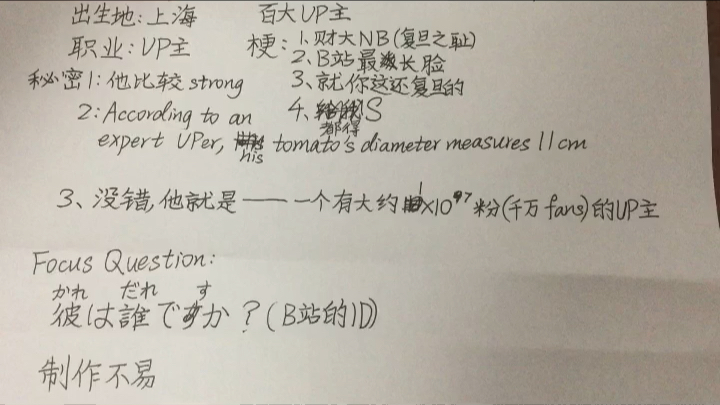 出生地:上海
百大UP主
职业:UP主
梗:1.财大NB(复旦之耻)
2、B站最长脸
秘密1:他比较strong
3、就你这还复旦的
2:According to an
4、都得S
expert UPer, his tomato's diameter measures 11cm
3、没错,他就是——一个有大约1×10^7粉(千万fans)的UP主
Focus Question:
かれ だれ す
彼は誰ですか?(B站的ID)
制作不易